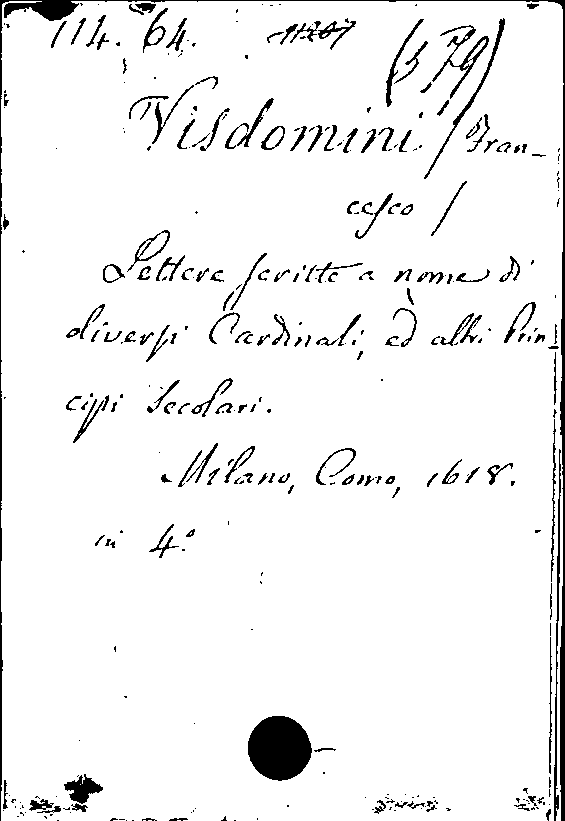 114. 64. (5 79)
Visdomini / Fran-
cesco /
Lettere scritte a nome di
diversi Cardinali, ed altri Prin-
cipi Secolari.
Milano, Como, 1618.
in 4.º